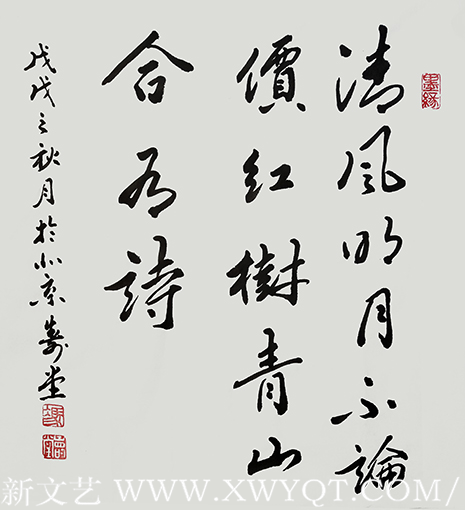 墨緣
清風明月不論
價紅樹青山
合有詩
戊戌之秋月於北京壽堂
新文艺 WWW.XWYQT.COM/